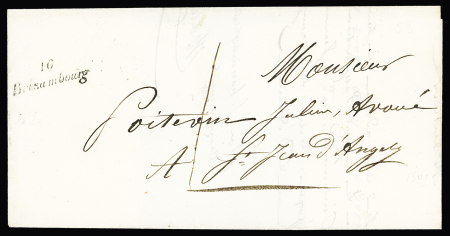 16
Brizambourg
Monsieur
Poitevin Julien, Avoué
A St Jean d'Angely